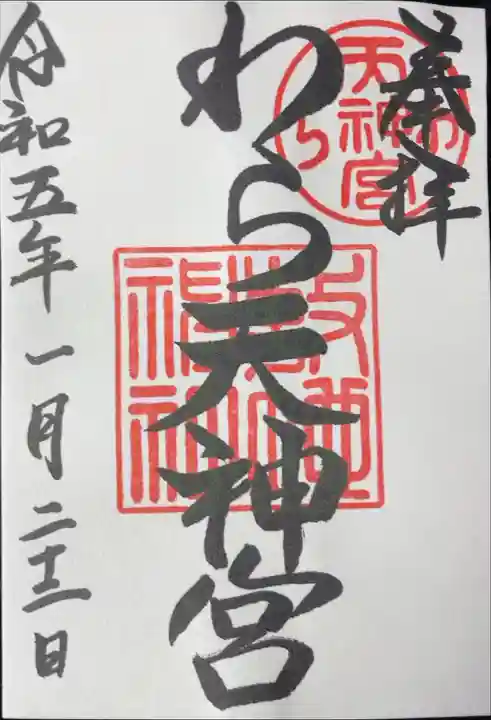 奉拝
わら天神宮
令和五年一月二十二日
わら
天神宮